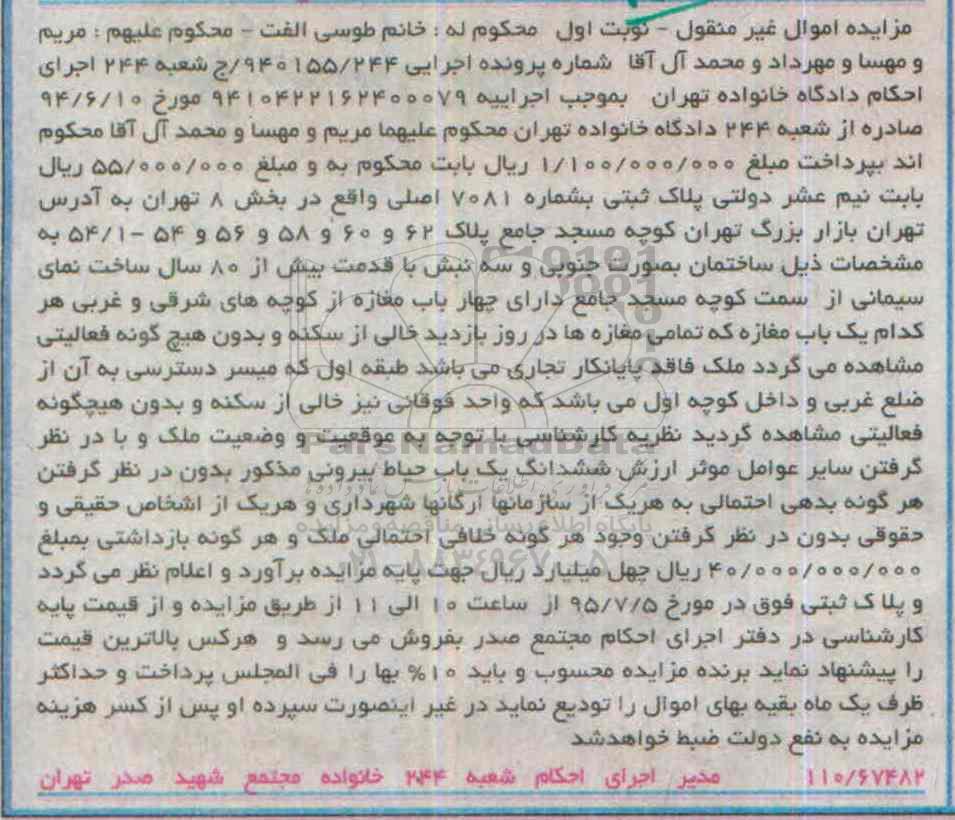 مزایده اموال غیر منقول - نوبت اول محکوم له : خانم طوسی الفت - محکوم علیهم : مریم
و مهسا و مهرداد و محمد آل آقا شماره پرونده اجرایی ۹۴۰۱۵۵/۲۴۴/ج شعبه ۲۴۴ اجرای
احکام دادگاه خانواده تهران بموجب اجراییه ۹۴۱۰۴۲۲۱۶۲۴۰۰۰۷۹ مورخ ۹۴/۶/۱۰
صادره از شعبه ۲۴۴ دادگاه خانواده تهران محکوم علیهما مریم و مهسا و محمد آل آقا محکوم
اند بپرداخت مبلغ ۱/۱۰۰/۰۰۰/۰۰۰ ریال بابت محکوم به و مبلغ ۵۵/۰۰۰/۰۰۰ ریال
بابت نیم عشر دولتی پلاک ثبتی بشماره ۷۰۸۱ اصلی واقع در بخش ۸ تهران به آدرس
تهران بازار بزرگ تهران کوچه مسجد جامع پلاک ۶۲ و ۶۰ و ۵۸ و ۵۶ و ۵۴ -۵۴/۱ به
مشخصات ذیل ساختمان بصورت جنوبی و سه نبش با قدمت بیش از ۸۰ سال ساخت نمای
سیمانی از سمت کوچه مسجد جامع دارای چهار باب مغازه از کوچه های شرقی و غربی هر
کدام یک باب مغازه که تمامی مغازه ها در روز بازدید خالی از سکنه و بدون هیچ گونه فعالیتی
مشاهده می گردد ملک فاقد پایانکار تجاری می باشد طبقه اول که میسر دسترسی به آن از
ضلع غربی و داخل کوچه اول می باشد که واحد فوقانی نیز خالی از سکنه و بدون هیچگونه
فعالیتی مشاهده گردید نظریه کارشناسی با توجه به موقعیت و وضعیت ملک و با در نظر
گرفتن سایر عوامل موثر ارزش ششدانگ یک باب حیاط بیرونی مذکور بدون در نظر گرفتن
هر گونه بدهی احتمالی به هریک از سازمانها ارگانها شهرداری و هریک از اشخاص حقیقی و
حقوقی بدون در نظر گرفتن وجود هر گونه خلافی احتمالی ملک و هر گونه بازداشتی بمبلغ
۴۰/۰۰۰/۰۰۰/۰۰۰ ریال چهل میلیارد ریال جهت پایه مزایده برآورد و اعلام نظر می گردد
و پلاک ثبتی فوق در مورخ ۹۵/۷/۵ از ساعت ۱۰ الی ۱۱ از طریق مزایده و از قیمت پایه
کارشناسی در دفتر اجرای احکام مجتمع صدر بفروش می رسد و هرکس بالاترین قیمت
را پیشنهاد نماید برنده مزایده محسوب و باید ۱۰% بها را فی المجلس پرداخت و حداکثر
ظرف یک ماه بقیه بهای اموال را تودیع نماید در غیر اینصورت سپرده او پس از کسر هزینه
مزایده به نفع دولت ضبط خواهدشد
۱۱۰/۶۷۴۸۲ مدیر اجرای احکام شعبه ۲۴۴ خانواده مجتمع شهید صدر تهران
ParsNamadData
پایگاه اطلاع رسانی مناقصه و مزایده